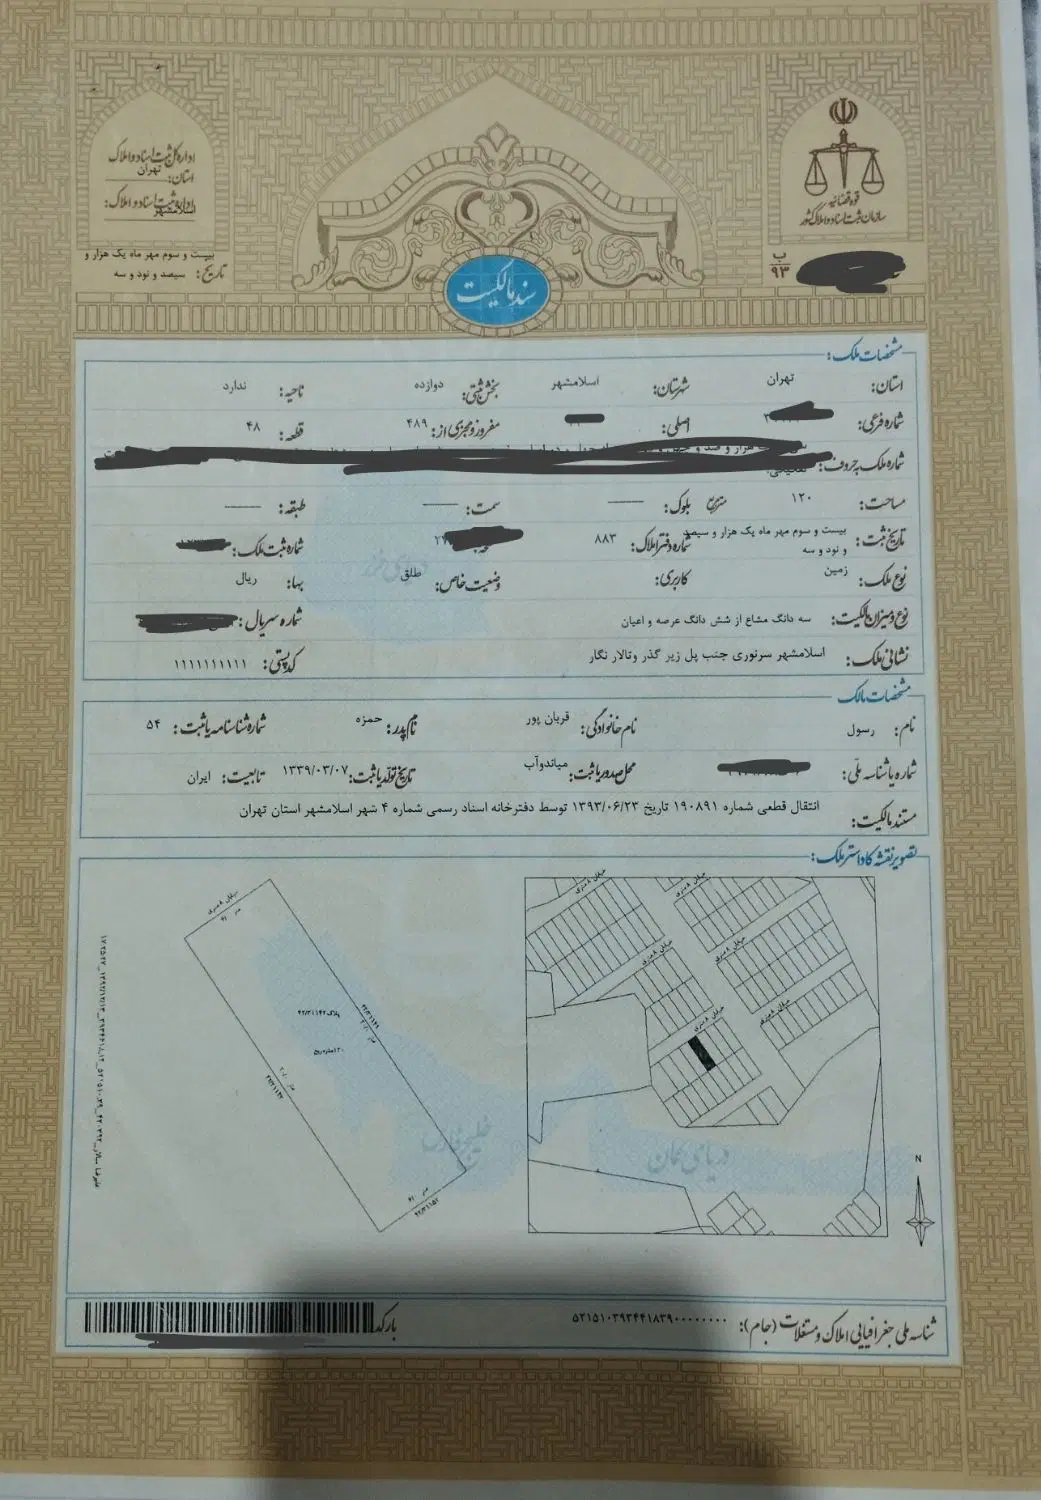 قوه قضائیه
سازمان ثبت اسناد و املاک کشور
اداره کل ثبت اسناد و املاک
استان: تهران
اداره ثبت اسناد و املاک:
اسلامشهر
ب
۹۳
تاریخ: بیست و سوم مهر ماه یک هزار و
سیصد و نود و سه
سند مالکیت
مشخصات ملک:
استان: تهران شهرستان: اسلامشهر بخش ثبتی: دوازده ناحیه: ندارد
شماره فرعی: اصلی: مفروز و مجزی از: ۴۸۹ قطعه: ۴۸
شماره ملک به حروف:
مساحت: ۱۲۰ مترمربع بلوک: —— سمت: —— طبقه: ——
تاریخ ثبت: بیست و سوم مهر ماه یک هزار و سیصد
و نود و سه
شماره دفتر املاک: ۸۸۳ شماره ثبت ملک:
نوع ملک: زمین کاربری: وضعیت خاص: طلق بها: ریال
نوع و میزان مالکیت: سه دانگ مشاع از شش دانگ عرصه و اعیان شماره سریال:
نشانی ملک: اسلامشهر سرنوری جنب پل زیر گذر وتالار نگار کد پستی: ۱۱۱۱۱۱۱۱۱۱
مشخصات مالک
نام: رسول نام خانوادگی: قربان پور نام پدر: حمزه شماره شناسنامه یا ثبت: ۵۴
شماره یا شناسه ملی: محل صدور یا ثبت: میاندوآب تاریخ تولد یا ثبت: ۱۳۳۹/۰۳/۰۷ تابعیت: ایران
مستند مالکیت: انتقال قطعی شماره ۱۹۰۸۹۱ تاریخ ۱۳۹۳/۰۶/۲۳ توسط دفترخانه اسناد رسمی شماره ۴ شهر اسلامشهر استان تهران
تصویر نقشه کاداستر ملک:
خیابان ۸ متری
خیابان ۸ متری
خیابان ۸ متری
خیابان ۸ متری
خیابان ۸ متری
خیابان ۸ متری
خیابان ۸ متری
خلیج فارس
دریای عمان
N
شناسه ملی جغرافیایی املاک و مستغلات (جام): ۵۳۱۵۱۰۳۹۳۴۴۱۸۳۹۰۰۰۰۰۰۰۰
بارکد